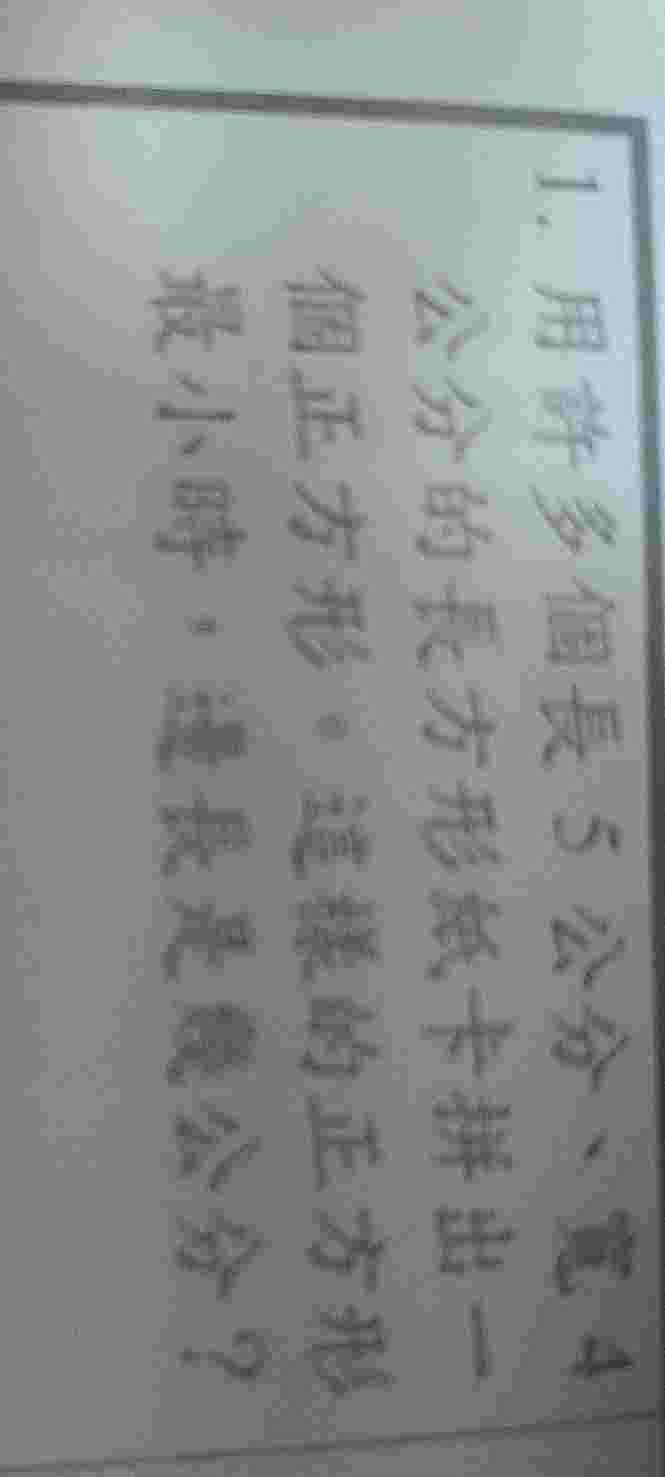 1. 用許多個長5公分、寬4
公分的長方形紙卡拼出一
個正方形。這樣的正方形
最小時,邊長是幾公分?